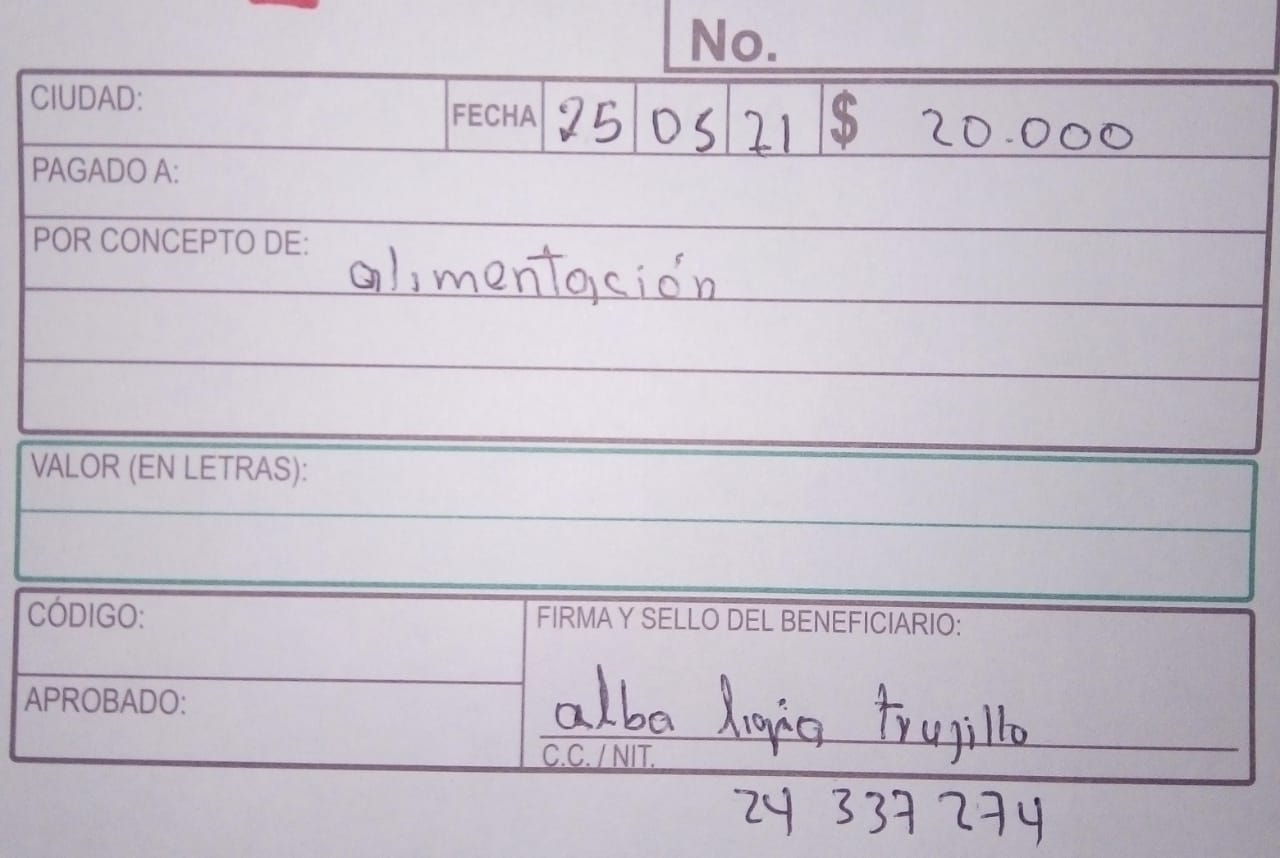 No.
CIUDAD: FECHA 25 05 21 $ 20.000
PAGADO A:
POR CONCEPTO DE: alimentación
VALOR (EN LETRAS):
CÓDIGO: FIRMA Y SELLO DEL BENEFICIARIO:
APROBADO: alba ligia trujillo
C.C. / NIT.
24 337 274